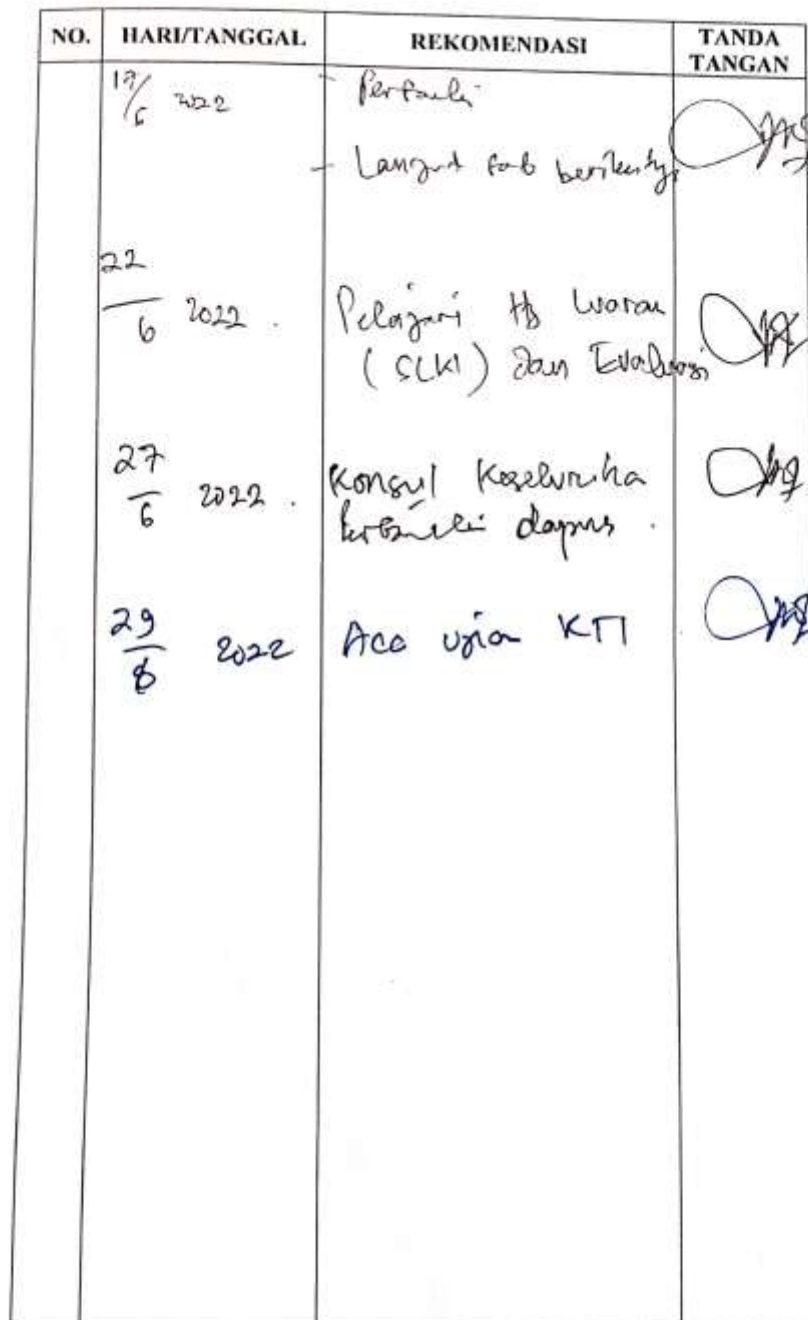 NO. HARI/TANGGAL REKOMENDASI TANDA TANGAN
17/6 2022 - Perbaiki
- Lanjut bab berikutnya
22/6 2022. Pelajari Luaran
(SLKI) dan Evaluasi
27/6 2022. Konsul Keseluruha
perbaiki dapus.
29/6 2022 Acc ujian KTI